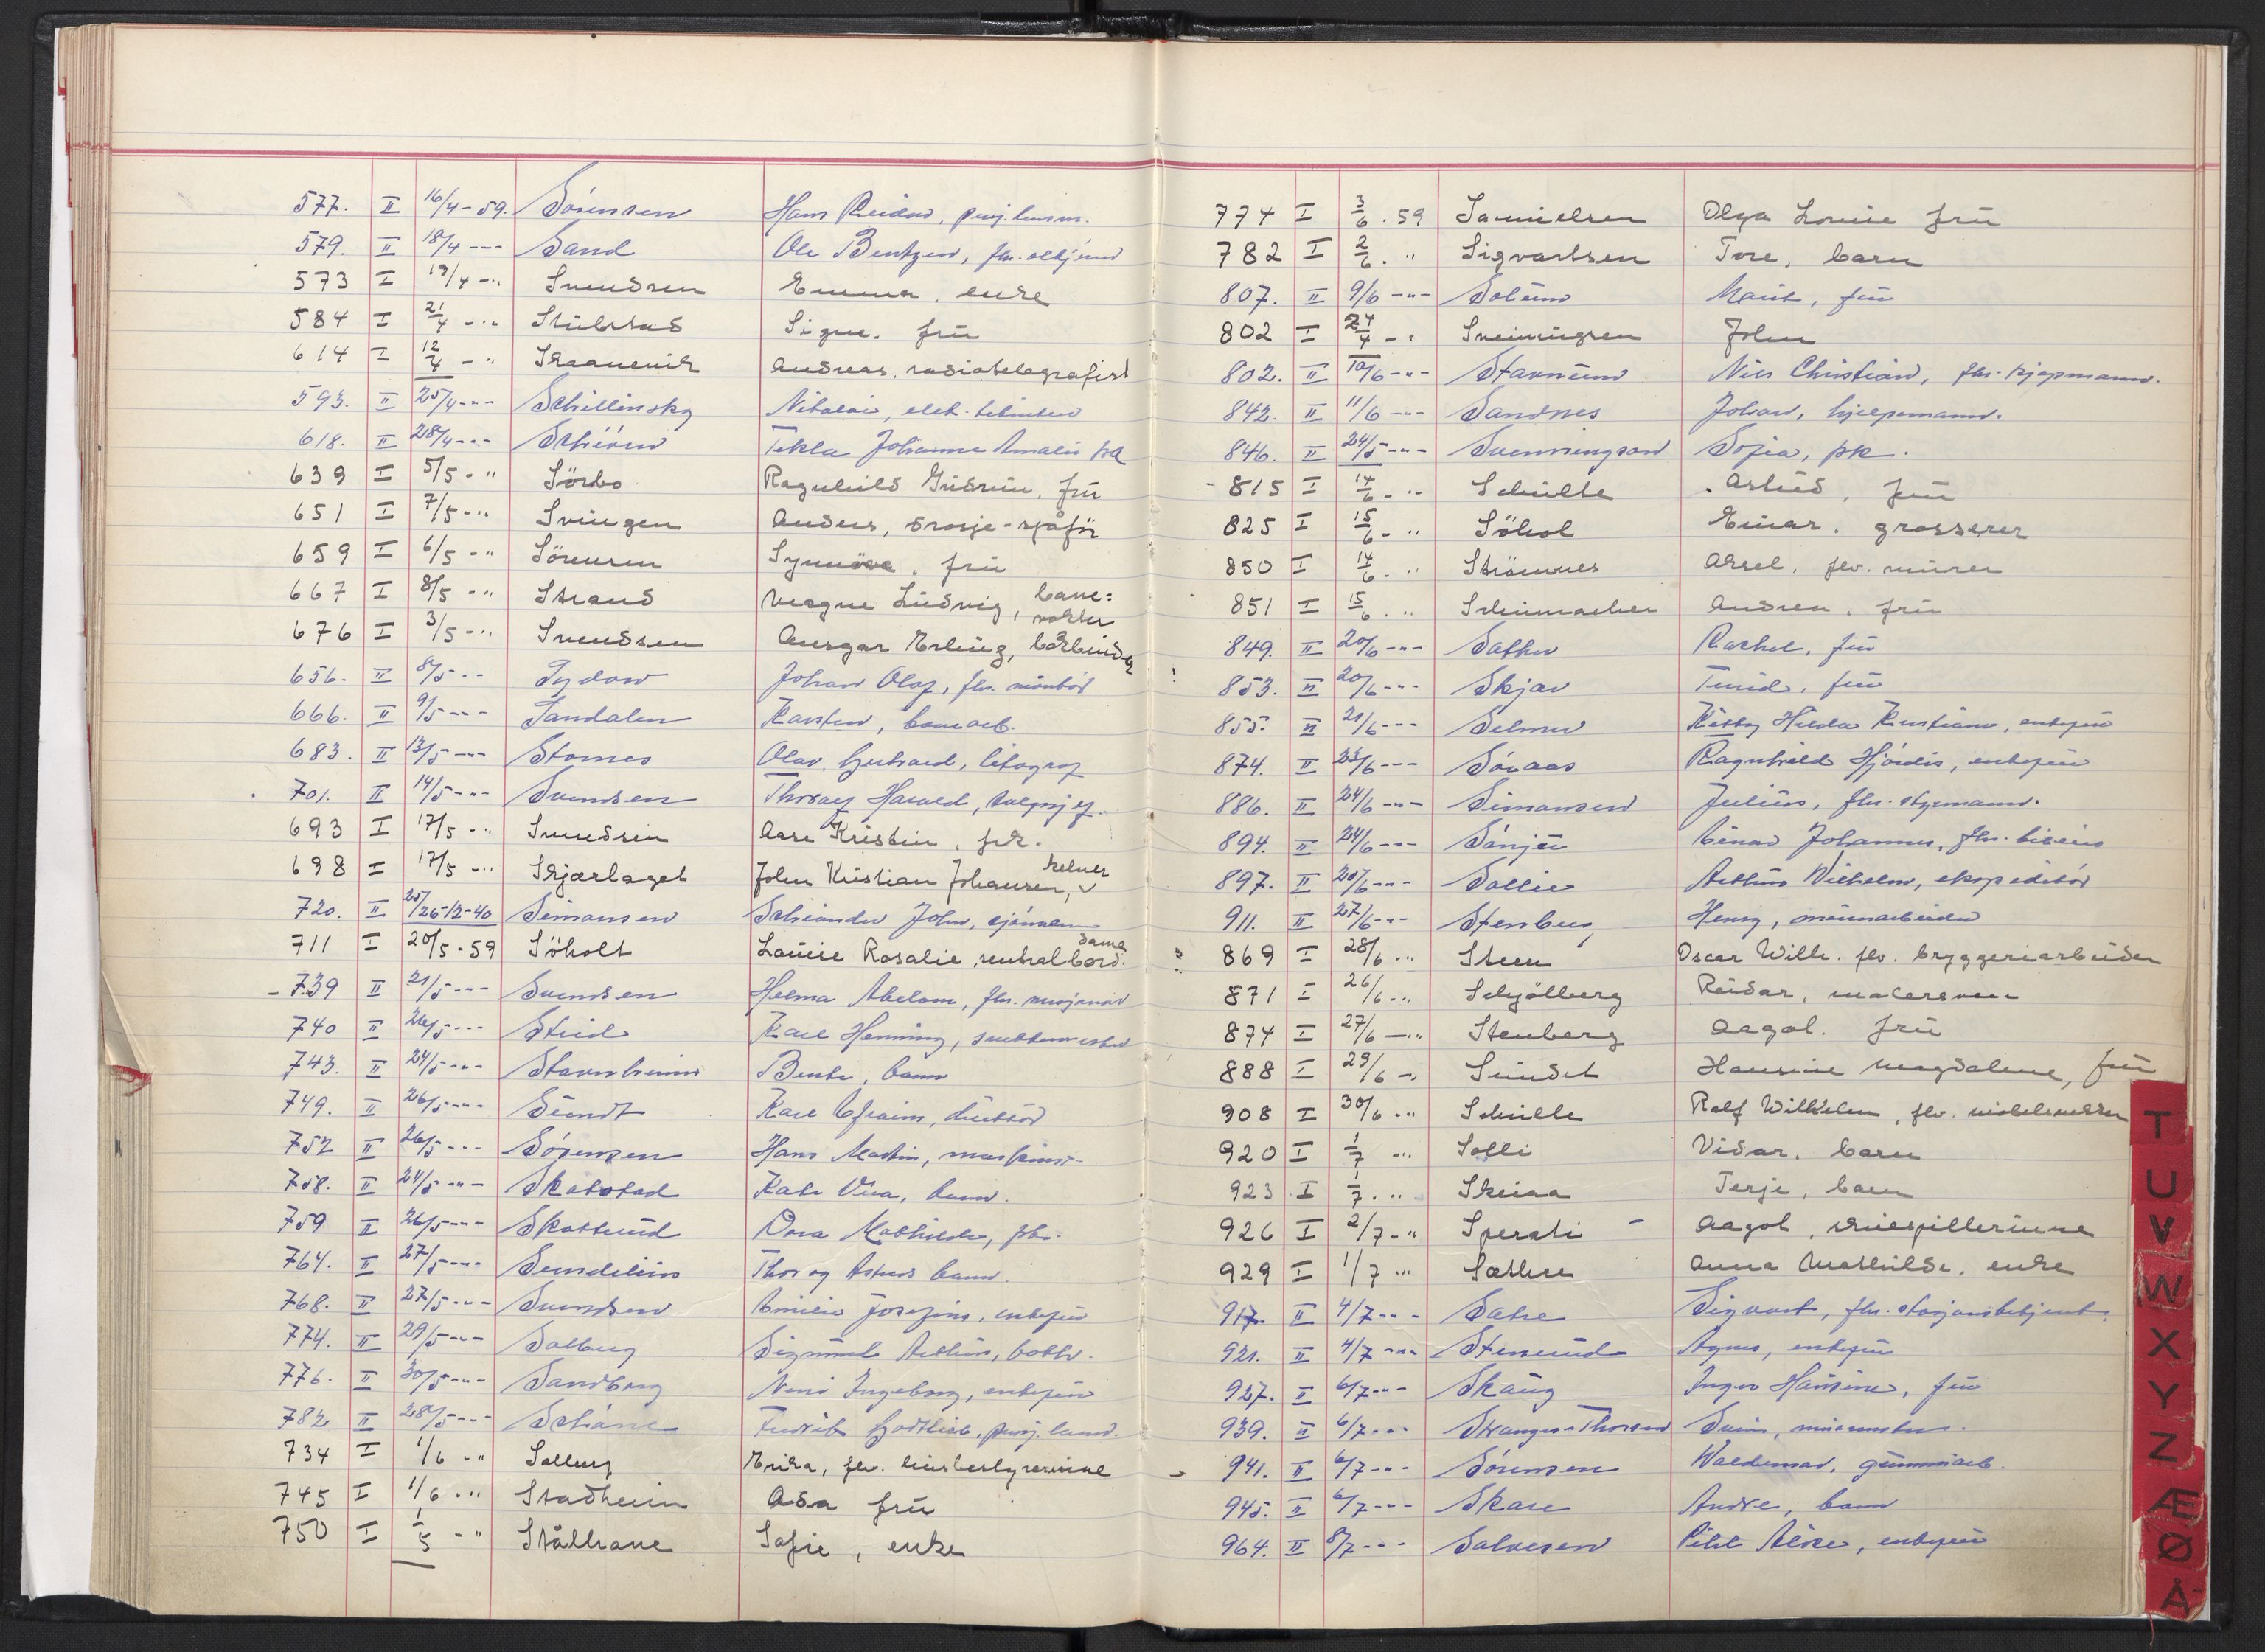 577. II 16/4-59. Sörensen Hans Reidar, pensj.
579. II 18/4 --- Sand Ole Bentzen, fhv.
573 I 19/4 -" Svendsen Emma, enke
584 I 21/4 -" Stubstad Signe. frü
614 I 12/4 -" Skaanevik Andreas, radiotelegrafist
593. II 25/4 -"- Schillinsky Nikolai, elek.
618. II 28/4 -"- Tekla Johanne Amalie
639 I 5/5 -" Sörbo Ragnhild Güdrün, frü
651 I 7/5 -" Svingen Anders, drosje-sjåför
659 I 6/5 -" Sörensen Synnöve, frü
667 I 8/5 -" Strand Magne Lüdvig, bane=
vokter
676 I 3/5 -" Svendsen Ansgar Erling, bokbinder
656. II 8/5 -- Sydow Johan Olaf, fhv.
666. II 9/5 --- Sandalen Karsten,
683. II 13/5 -"- Stornes Olav Gerhard, litograf
701. II 14/5 -"- Svendsen Thoralf Harald, salgssjef.
693 I 17/5 -" Svendsen Aase Kristin, frk.
698 I 17/5 -" Skjærlaget John Kristian Johansen, kelner
720. II 25/26-12-40 Simonsen John, sjömann
711 I 20/5-59 Söholt Louise Rosalie, sentralbord.
dame
739 II 21/5 --- Svendsen Helma Abelone, fhv.
740 II Strid Karl Henning,
743. II 24/5 -"- Stavnheim Bente, barn
749. II 26/5 -"- Sundt Karl Efraim,
752 II 26/5 --- Sörensen Hans Martin, maskinist
758. II 24/5 -"- Skatstad Kate Vera, barn.
759 II 26/5 --- Skotlund Dora Mathilde,
764. II 27/5 --- Sundelius Thor og Astrid barn.
768. II 27/5 -"- Svendsen Emilie Josefine, enkefrü
774. II 29/5 -"- Solberg Sigmund Arthur,
776. II 30/5 -"- Sandborg Ingeborg, enkefrü
782 II 28/5 --- Fredrik Gottlieb, pensj.
734 I 1/6 -" Solberg Erika, fhv. husbestyrerinne
745 I 1/6 -" Stadheim Asa frü
750 I 1/5 -" Stålhane Sofie, enke
774 I 3/6.59 Samuelsen Olga Louise frü
782 I 2/6. " Sigvartsen Tore, barn
807. II 9/6 -"- Solum Marit, frü
802 I 24/4 -" Sveinüngsen John
802. II 10/6 -"- Stavnum Nils Christian, fhv. kjøpmann.
842. II 11/6 --- Sandnes Johan, hjelpemann.
846. II 24/5 -"- Svenningsen Sofia, frk.
815 I 14/6 -" Schülte Astrid, frü
825 I 15/6 -" Söhol Einar, grosserer
850 I 14/6. " Strömnes Aksel, fhv. mürer
851 I 15/6. " Schümacher Andrea, frü
849. II 20/6 -"- Sather Rachel, frü
853. II 20/6 -"- Skjav Turid, frü
855. II 21/6 --- Selmer Hilda Kristiane, enkefrü
874. II 23/6 --- Söraas Ragnhild Hjördis, enkefrü
886. II 24/6 -"- Simonsen Julius, fhv. styrmann.
894. II 24/6 -"- Einar Johannes, fhv.
897. II 20/6 --- Sollie Arthur Wilhelm, ekspeditör
911. II 27/6 -"- Stenberg Henry,
869 I 28/6 -" Steen Oscar Wilh. fhv. bryggeriarbeider
871 I 26/6 -" Schjölberg Reidar, malersvenn
874 I 27/6 -" Stenberg Aagot. frü
888 I 29/6 -" Sündet Hansine Magdalene, frü
908 I 30/6 -" Schülte Rolf Wilhelm, fhv. möbelsnekker
920 I 1/7 -" Solli Vidar, barn
923 I 1/7. " Skeiaa Terje, barn
926 I 2/7 -" Sperati - Aagot, sküespillerinne
929 I 1/7 -" Sæthre Anna Mathilde, enke
917. II 4/7 --- Satre Sigvart, fhv. stasjonsbetjent.
921. II 4/7 -"- Stensrud Agnes, enkefrü
927. II 6/7 --- Skaug Inger Hansine, frü
939. II 6/7 --- Stranger-Thorsen
941. II 6/7 -"- Sörensen Waldemar, gummiarb.
945. II 6/7 -"- Skare Andre, barn
964. II 8/7 --- Salvesen enkefrü
T
U
V
W
X
Y
Z
Æ
Ø
Å